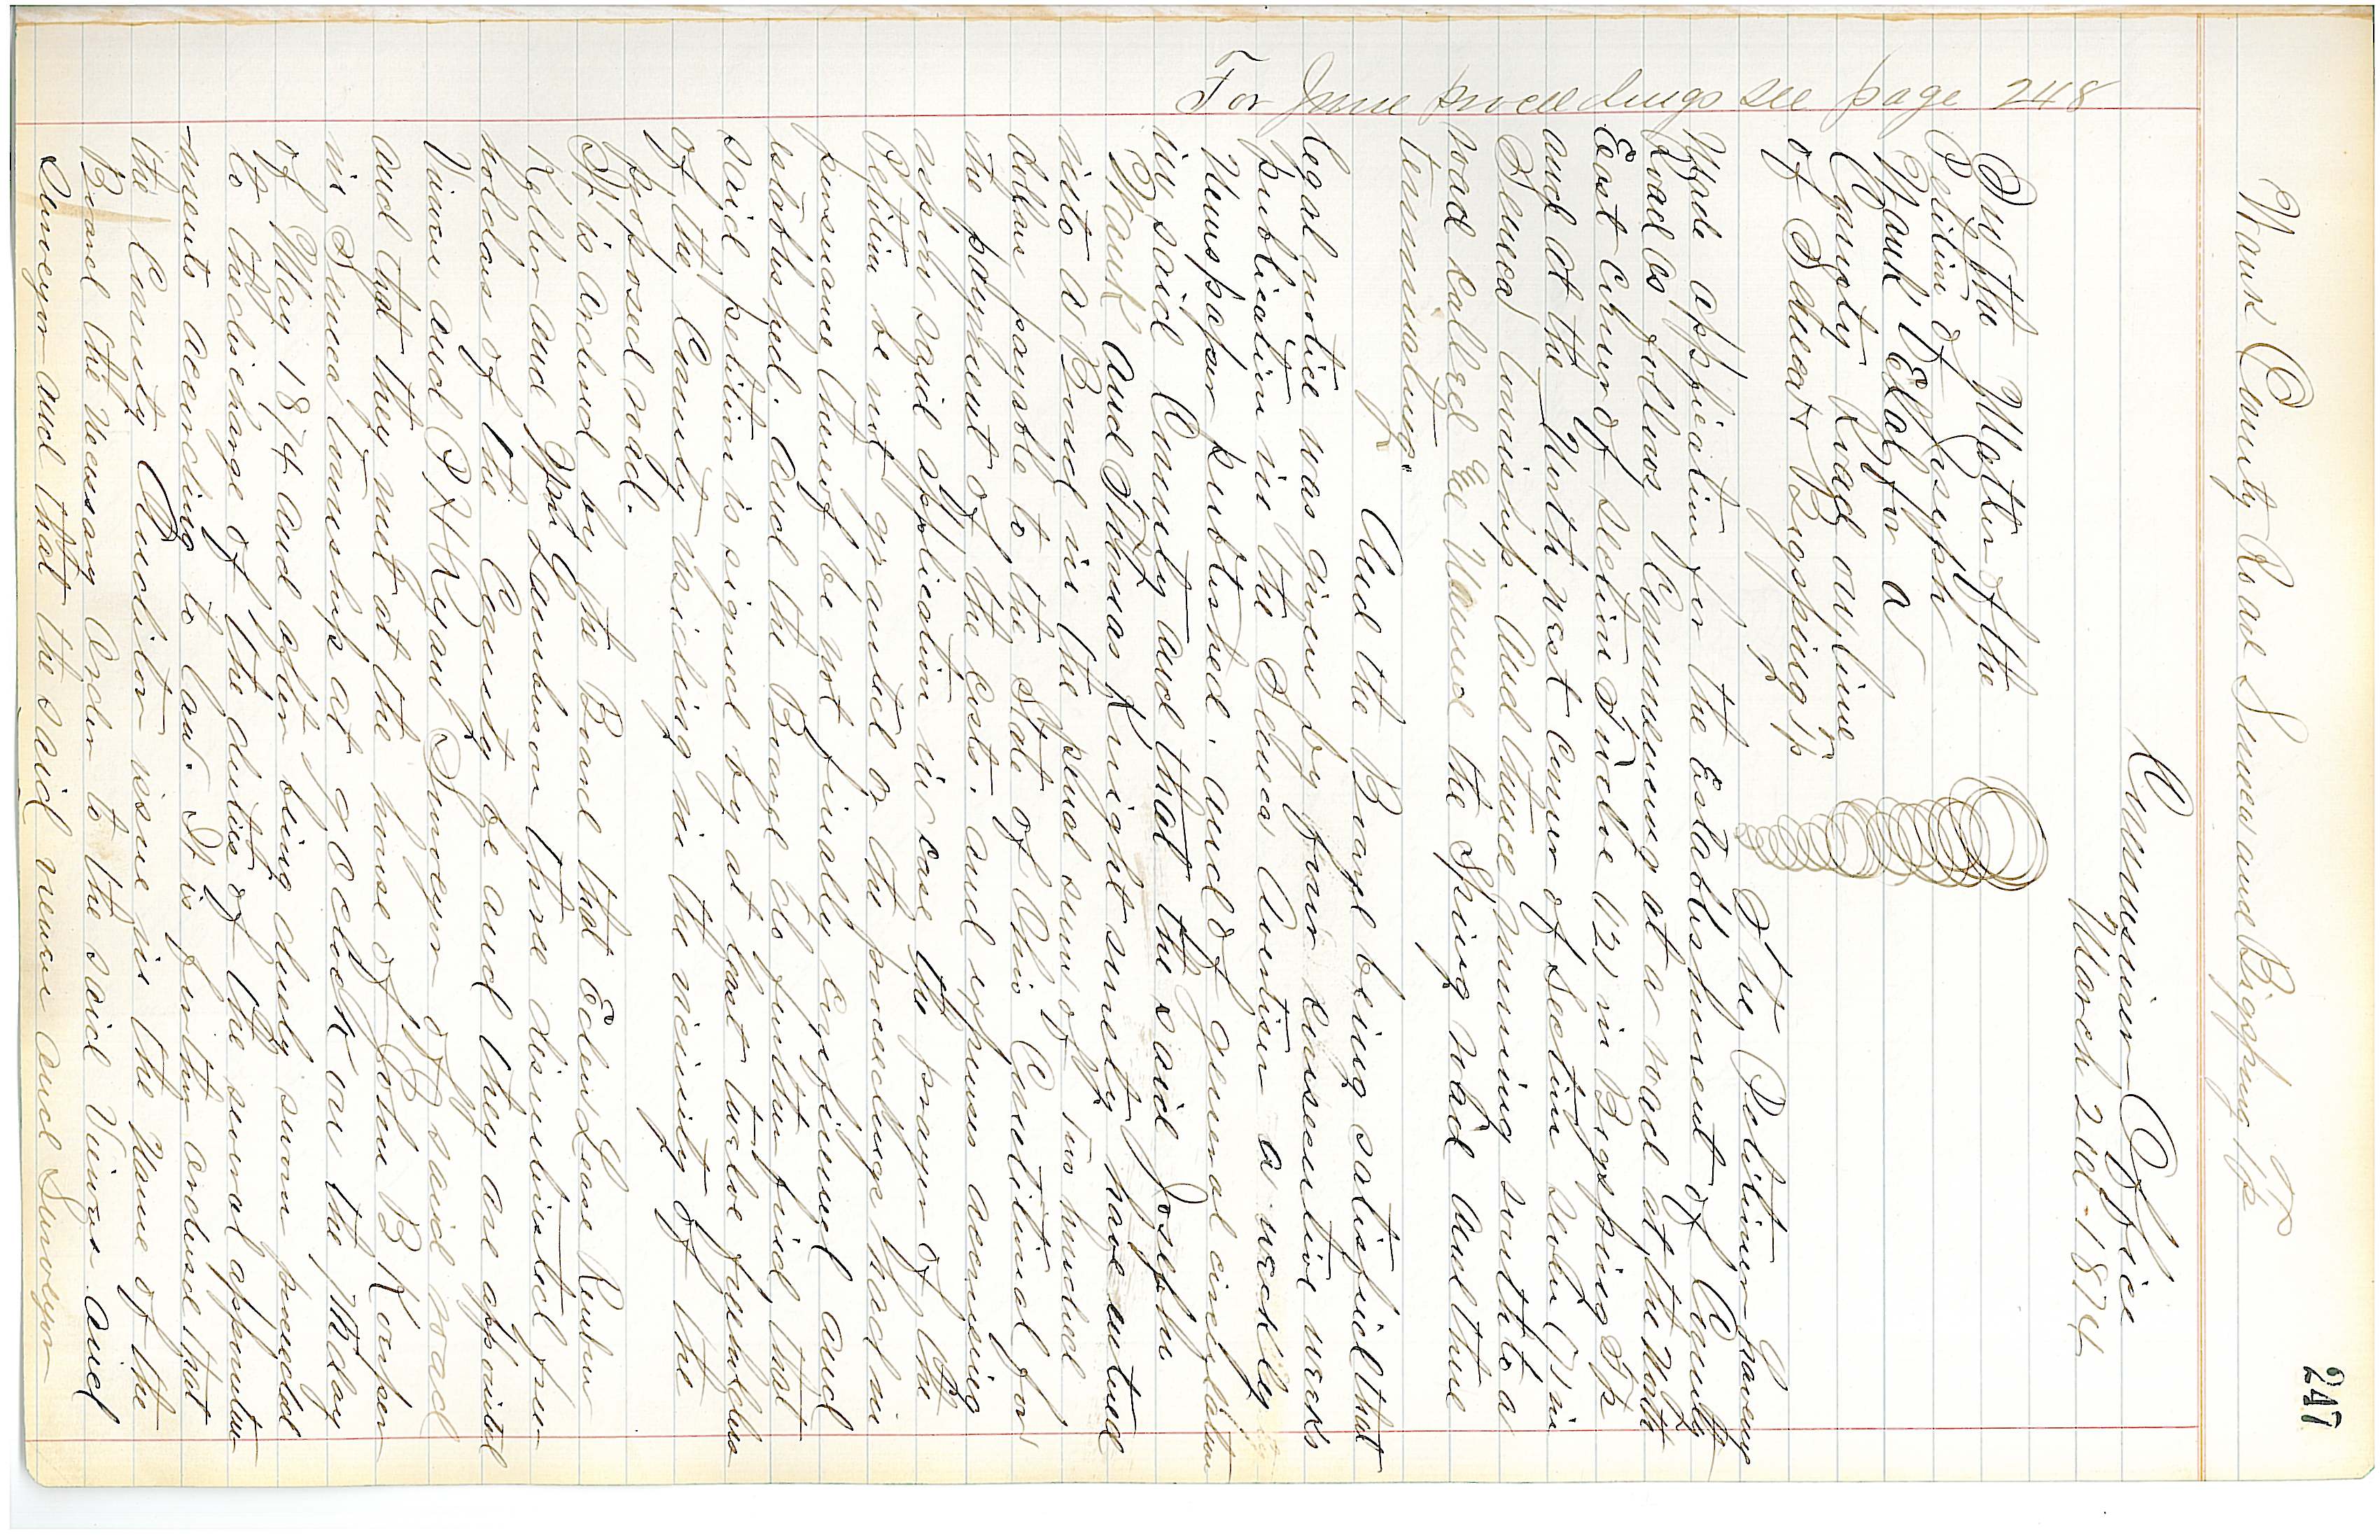 247
Wank County Road Seneca and Bigspring Tp
Commissioners Office
March 2nd 1874
In the Matter of the
Petition of Joseph
Wank Et al for a
County Road on line
of Seneca & Bigspring Tp
The Petitioner having
Made application for the Establishment of County
Road as follows, Commencing at a road at the North
East corner of section Twelve (12) in Bigspring Tp
and at the North west corner of Section seven (7) in
Seneca Township. And thence running south to a
road called the Spring road and there
terminating.
And the Board being satisfied that
legal notice was given by four consecutive weeks
publication in the Seneca Advertiser a weekly
Newspaper published and of general circulation
in said County and that the said Joseph
Wank and Thomas Knight surety have entered
into a Bond in the penal sum of Two hundred
dollars payable to the State of Ohio Conditioned for
the payment of the costs and expenses accruing
upon said application in case the prayer of the
Petition be not granted or the proceedings had in
pursuance thereof be not finally confirmed and
established. And the Board do further find that
said petition is signed by at least twelve freeholders
of the County residing in the vicinity of the
proposed road.
It is ordered by the Board that Eden Lease Reuben
Keller and Lambertson three disinterested free
holders of the County be and they are appointed
Viewers and P H Ryan Surveyor of said road
and that they meet at the house of John B Korper
in Seneca township at 9 oclock on the day
of May 1874 and after being duly sworn proceeded
to the discharge of the duties of the several appointm
-ments according to law. It is further ordered that
the County Auditor issue in the Name of the
Board the necessary Order to the said Viewers and
Surveyor and that the said viewers and Surveyor
For June proceedings see page 248